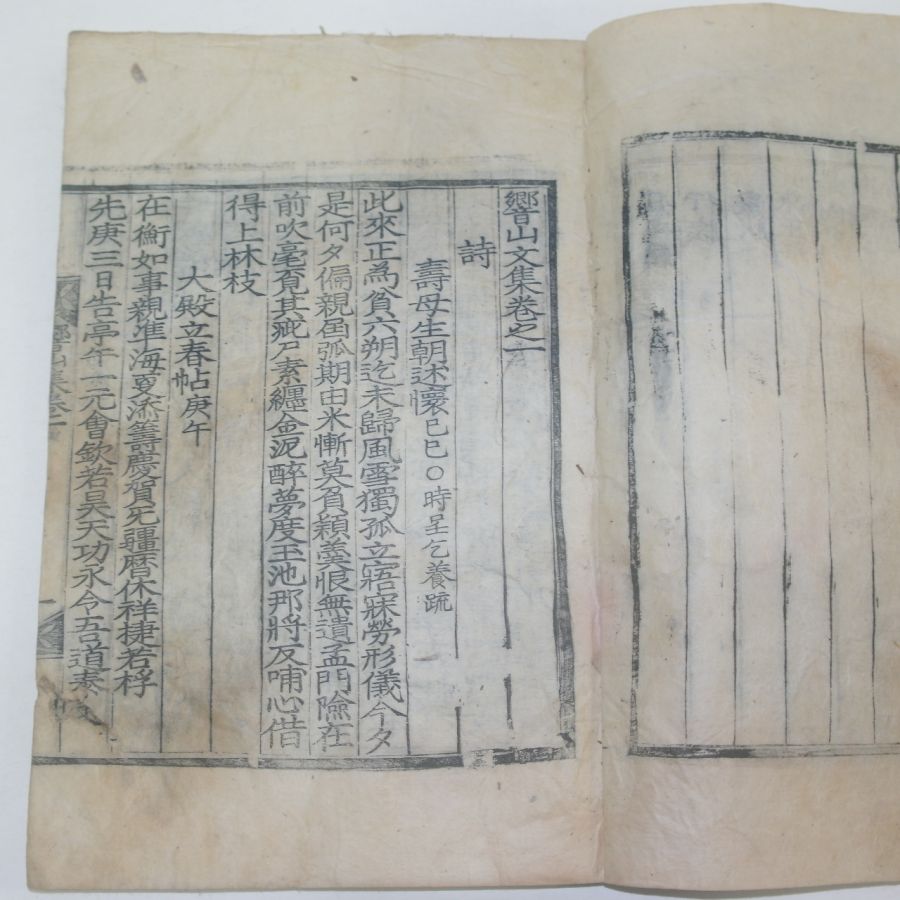 響山文集卷之一
詩
壽母生朝述懷己巳○時呈乞養疏
此來正為貧六朔迄未歸風雪獨孤立寤寐勞形儀今夕
是何夕偏親各弧期由米慚莫負穎羹恨無遺孟門險在
前吹毫覓其疵尸素纏金泥醉夢度玉池那將反哺心借
得上林枝
大殿立春帖庚午
在衡如事親準海夏添籌慶賀旡疆曆休祥捷若桴
先庚三日告亭午一元會欽若昊天功永令吾道泰